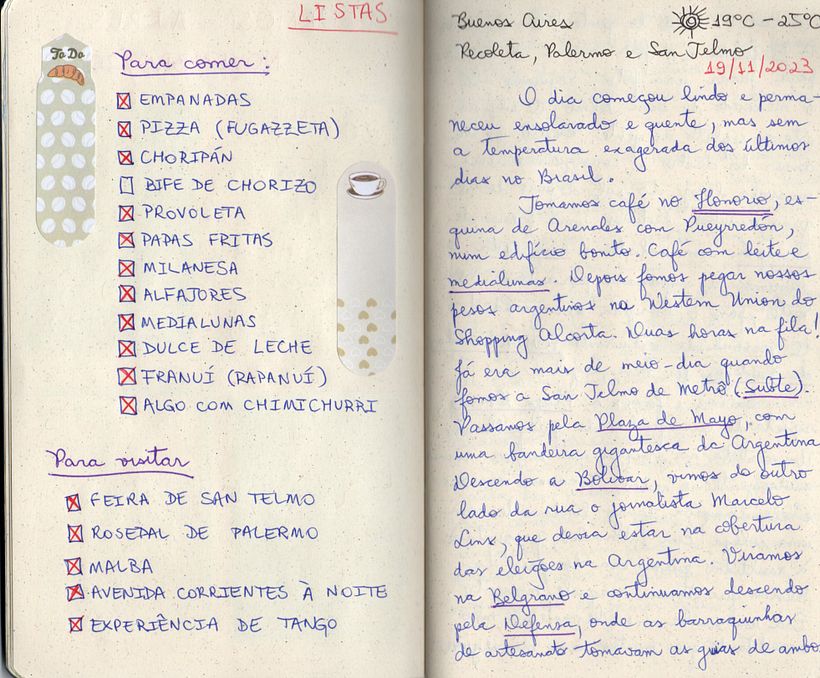 LISTAS
To Do
Para comer:
EMPANADAS
PIZZA (FUGAZZETA)
CHORIPÁN
BIFE DE CHORIZO
PROVOLETA
PAPAS FRITAS
MILANESA
ALFAJORES
MEDIALUNAS
DULCE DE LECHE
FRANUÍ (RAPANUÍ)
ALGO COM CHIMICHURRI
Para visitar
FEIRA DE SAN TELMO
ROSEDAL DE PALERMO
MALBA
AVENIDA CORRIENTES À NOITE
EXPERIÊNCIA DE TANGO
Buenos Aires 19°C - 25°C
Recoleta, Palermo e San Telmo
19/11/2023
O dia começou lindo e perma-
neceu ensolarado e quente, mas sem
a temperatura exagerada dos últimos
dias no Brasil.
Tomamos café no Honorio, es-
quina de Arenales com Pueyrredón,
num edifício bonito. Café com leite e
medialunas. Depois fomos pegar nossos
pesos argentinos na Western Union do
Shopping Alcorta. Duas horas na fila!
Já era mais de meio-dia quando
fomos a San Telmo de Metrô (Subte).
Passamos pela Plaza de Mayo, com
uma bandeira gigantesca da Argentina
Descendo a Bolívar, vimos do outro
lado da rua o jornalista Marcelo
Lins, que devia estar na cobertura
das eleições na Argentina. Viramos
na Belgrano e continuamos descendo
pela Defensa, onde as barraquinhas
de artesanato tomavam as guias de ambo